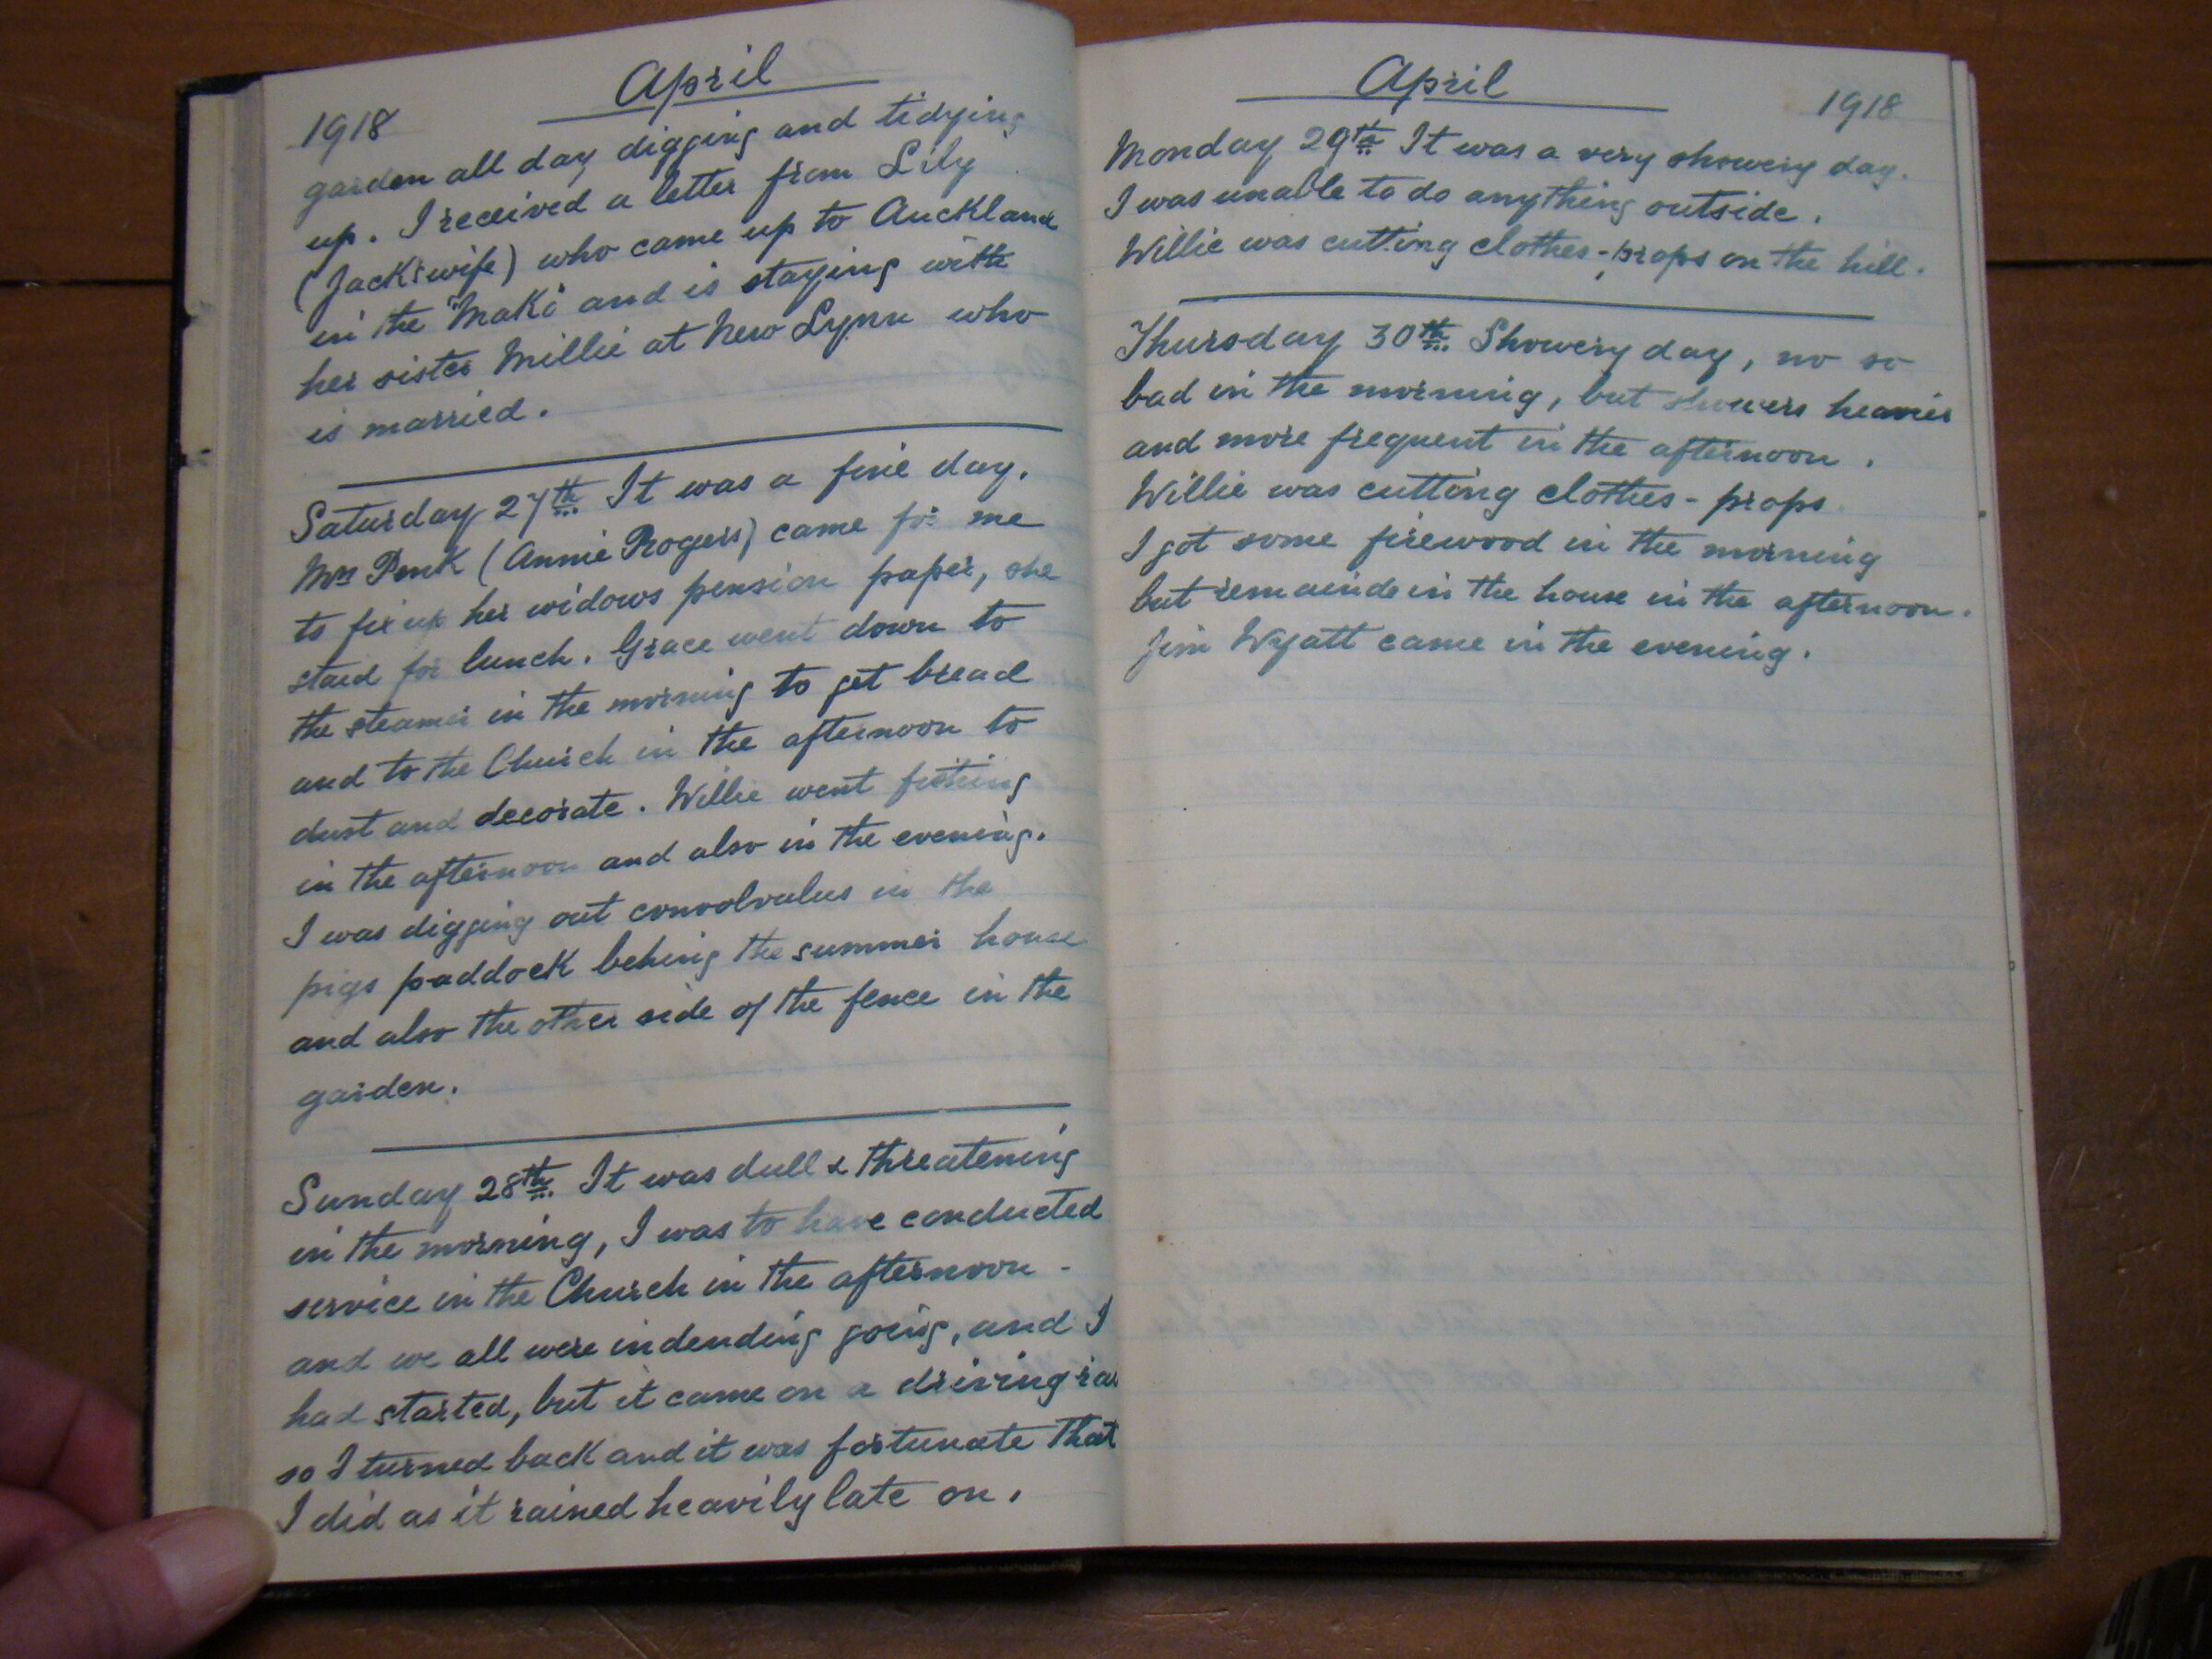 April
1918
garden all day digging and tidying
up. I received a letter from Lily
(Jack's wife) who came up to Auckland
in the "Mako" and is staying with
her sister Millie at New Lynn who
is married.
Saturday 27th. It was a fine day.
Mrs Penk (Annie Rogers) came for me
to fix up her widows pension paper, she
staid for lunch. Grace went down to
the steamer in the morning to get bread
and to the Church in the afternoon to
dust and decorate. Willie went fishing
in the afternoon and also in the evening.
I was digging out convolvulus in the
pigs paddock behing the summer house
and also the other side of the fence in the
garden.
Sunday 28th. It was dull & threatening
in the morning, I was to have conducted
service in the Church in the afternoon -
and we all were indending going, and I
had started, but it came on a driving rai
so I turned back and it was fortunate that
I did as it rained heavily late on.
April
1918
Monday 29th It was a very showery day.
I was unable to do anything outside.
Willie was cutting clothes-props on the hill.
Thursday 30th. Showery day, no so
bad in the morning, but showers heavier
and more frequent in the afternoon.
Willie was cutting clothes-props.
I got some firewood in the morning
but remainde in the house in the afternoon.
Jim Wyatt came in the evening.